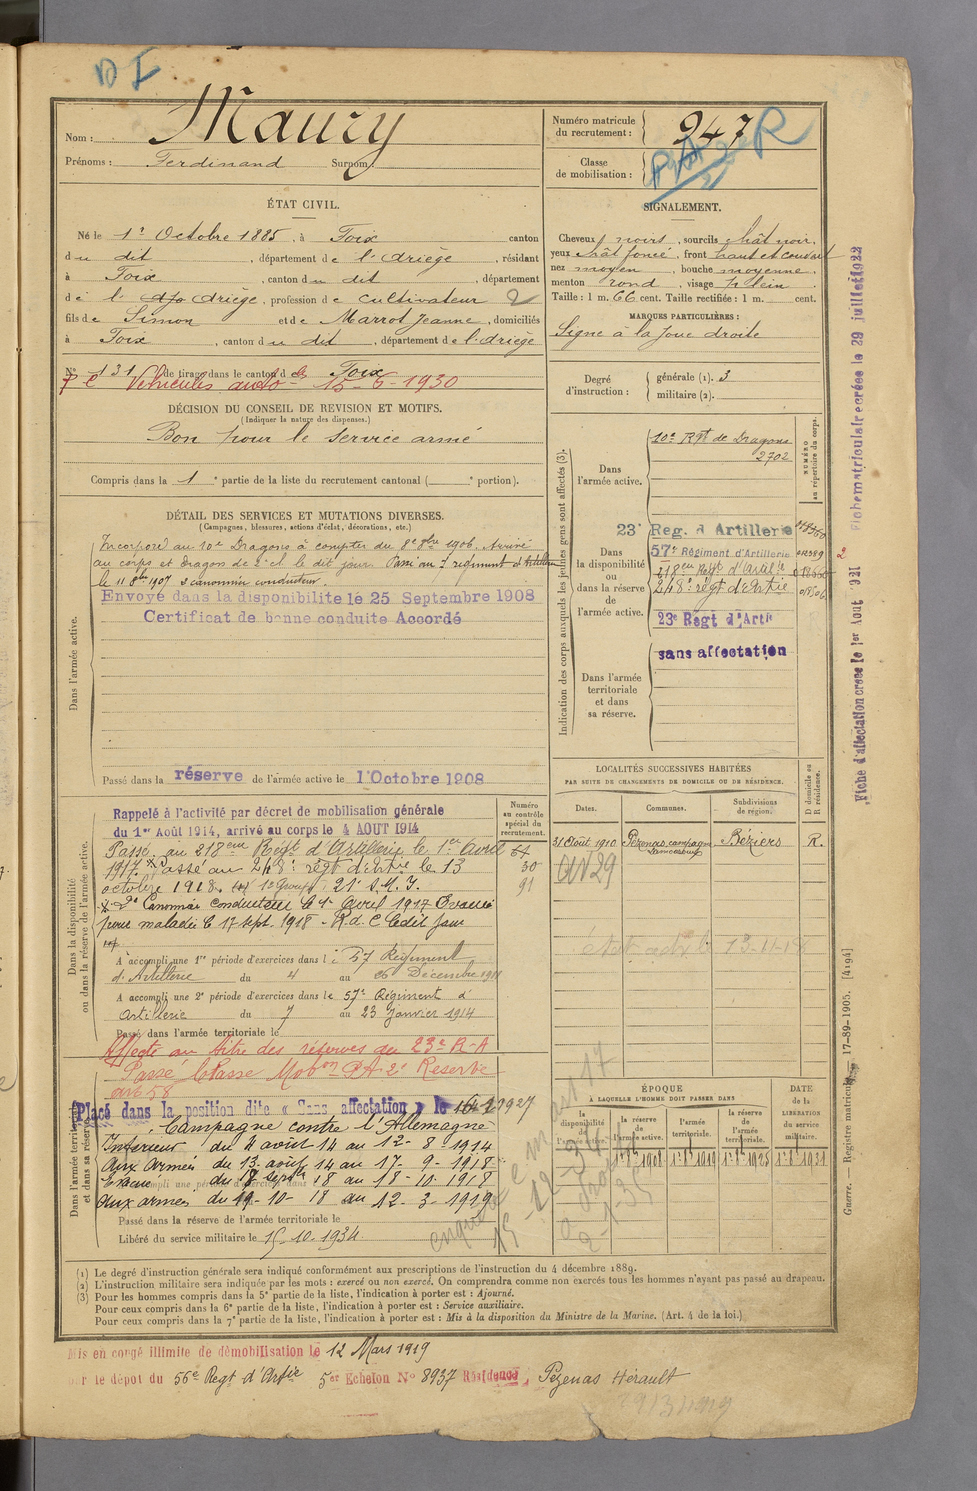 D I
Nom : Maury
Prénoms : Ferdinand Surnom :
Numéro matricule
du recrutement : 947
Classe
de mobilisation :
ÉTAT CIVIL.
Né le 1er Octobre 1885, à Foix canton
du dit, département de l'Ariège, résidant
à Foix, canton du dit, département
de l'Ariège, profession de cultivateur 2
fils de Simon et de Marrot Jeanne, domiciliés
à Foix, canton du dit, département de l'Ariège
N° 131 de tirage dans le canton de Foix
Véhicules auto 15-6-1930
SIGNALEMENT.
Cheveux noirs, sourcils chât noir,
yeux chât foncé, front haut et couvert
nez moyen, bouche moyenne,
menton rond, visage plein.
Taille : 1 m. 66 cent. Taille rectifiée : 1 m. cent.
MARQUES PARTICULIÈRES :
Signe à la joue droite
Degré
d'instruction :
générale (1). 3
militaire (2).
DÉCISION DU CONSEIL DE REVISION ET MOTIFS.
(Indiquer la nature des dispenses.)
Bon pour le service armé
Compris dans la 1e partie de la liste du recrutement cantonal ( e portion).
DÉTAIL DES SERVICES ET MUTATIONS DIVERSES.
(Campagnes, blessures, actions d'éclat, décorations, etc.)
Dans l'armée active.
Incorporé au 10e Dragons à compter du 8 8bre 1906. Arrivé
au corps et Dragon de 2e cl le dit jour. Passé au régiment d'Artillerie
le 11 8bre 1907 2e canonnier conducteur.
Envoyé dans la disponibilite le 25 Septembre 1908
Certificat de bonne conduite Accordé
Passé dans la réserve de l'armée active le 1er Octobre 1908
Indication des corps auxquels les jeunes gens sont affectés (3).
NUMÉRO
au répertoire du corps.
Dans
l'armée active.
10e Rgt de Dragons
2702
Dans
la disponibilité
ou
dans la réserve
de
l'armée active.
23e Reg. d'Artillerie
57e Régiment d'Artillerie
218eme Régt d'Artie
248e régt d'Artie
23e Regt d'Artie
sans affectation
Dans l'armée
territoriale
et dans
sa réserve.
LOCALITÉS SUCCESSIVES HABITÉES
PAR SUITE DE CHANGEMENTS DE DOMICILE OU DE RÉSIDENCE.
Dates.
Communes.
Subdivisions
de région.
D domicile ou
R résidence.
31 Août 1910 Pézenas, campagne Béziers R.
Dans la disponibilité
ou dans la réserve de l'armée active.
Numéro
au contrôle
spécial du
recrutement.
Rappelé à l'activité par décret de mobilisation générale
du 1er Août 1914, arrivé au corps le 4 AOUT 1914
Passé au 218eme Régt d'Artillerie le 1er Avril
1917. Passé au 248e régt d'Artie le 13
octobre 1918.
2e Canonnier conducteur le 1er Avril 1917 Evacué
pour maladie le 17 sept. 1918 - R.d.C le dit jour
A accompli une 1re période d'exercices dans le 57 Régiment
d'Artillerie du 4 au 26 Décembre 1911
A accompli une 2e période d'exercices dans le 57e Régiment d'
Artillerie du 7 au 23 Janvier 1914
Passé dans l'armée territoriale le
Affecté au titre des réserves du 23e R.A
Passé Classe Mobon PA 2e Réserve
Dans l'armée territoriale
et dans sa réserve.
Placé dans la position dite « Sans affectation » le 1927
Campagne contre l'Allemagne
Intérieur du 4 août 14 au 12-8 1914
Aux Armées du 13 août 14 au 17-9-1918
Evacué du 18 septb 18 au 18-10-1918
Aux armées du 19-10-18 au 12-3-1919
Passé dans la réserve de l'armée territoriale le
Libéré du service militaire le 15-10-1934
ÉPOQUE
À LAQUELLE L'HOMME DOIT PASSER DANS
DATE
de la
LIBÉRATION
du service
militaire.
la
disponibilité
de
l'armée active.
la réserve
de
l'armée active.
l'armée
territoriale.
la réserve
de
l'armée
territoriale.
(1) Le degré d'instruction générale sera indiqué conformément aux prescriptions de l'instruction du 4 décembre 1889.
(2) L'instruction militaire sera indiquée par les mots : exercé ou non exercé. On comprendra comme non exercés tous les hommes n'ayant pas passé au drapeau.
(3) Pour les hommes compris dans la 5e partie de la liste, l'indication à porter est : Ajourné.
Pour ceux compris dans la 6e partie de la liste, l'indication à porter est : Service auxiliaire.
Pour ceux compris dans la 7e partie de la liste, l'indication à porter est : Mis à la disposition du Ministre de la Marine. (Art. 4 de la loi.)
Mis en congé illimité de démobilisation le 12 Mars 1919
par le dépôt du 56e Regt d'Artie 5er Echelon N° 8937 Résidence Pézenas Hérault
Fiche d'affectation créée le 1er Aout 1921 Fiche matriculaire créée le 29 juillet 1922
Guerre. — Registre matricule. — 17-89-1905. [4194]